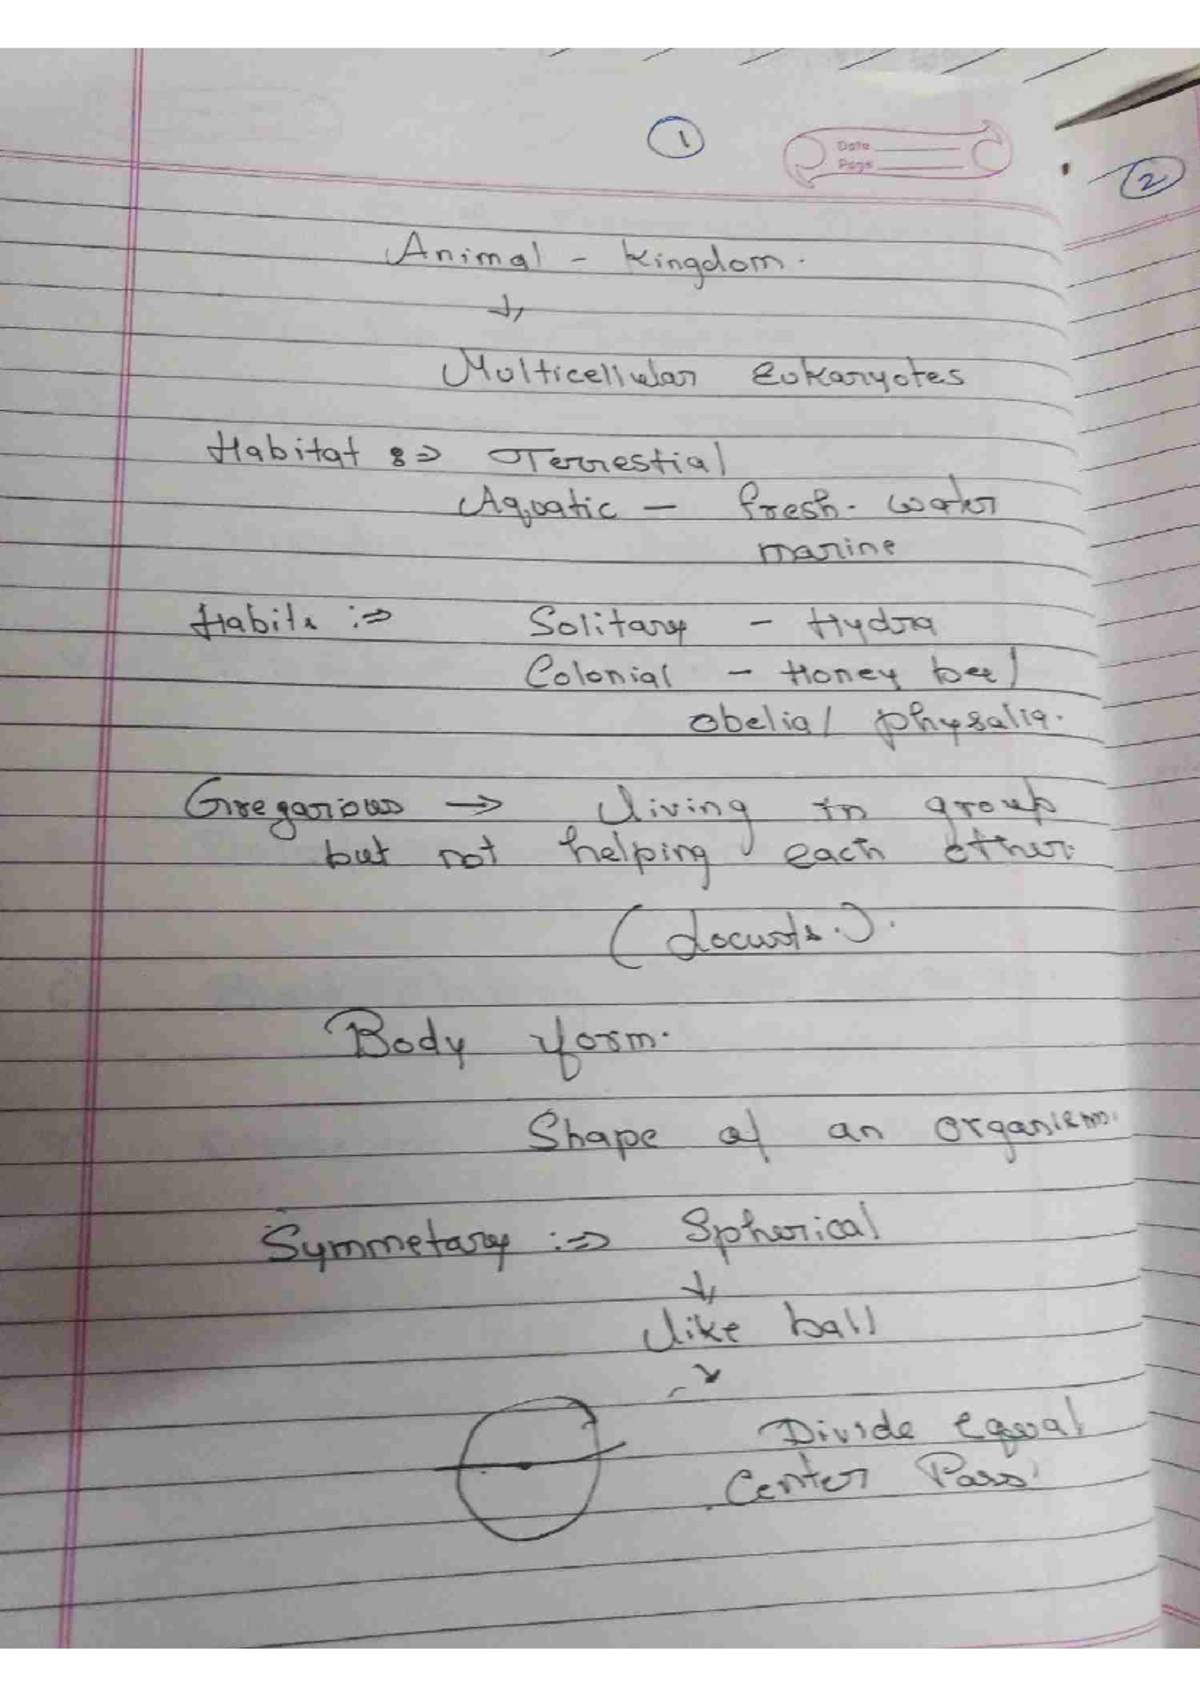 1
Date
Page
2
Animal - Kingdom.
↓
Multicellular Eukaryotes
Habitat :⇒ Terrestial
Aquatic — fresh. water
marine
Habits :⇒ Solitary - Hydra
Colonial - Honey bee/
obelia/ physalia.
Gregarious → living in group
but not helping each other.
(Locusts.).
Body form.
Shape of an organism.
Symmetary :⇒ Spherical
↓
like ball
Divide equal
Center Pass